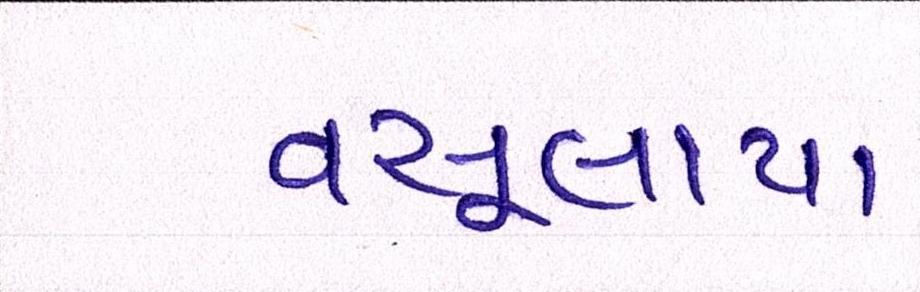 વસૂલાયા